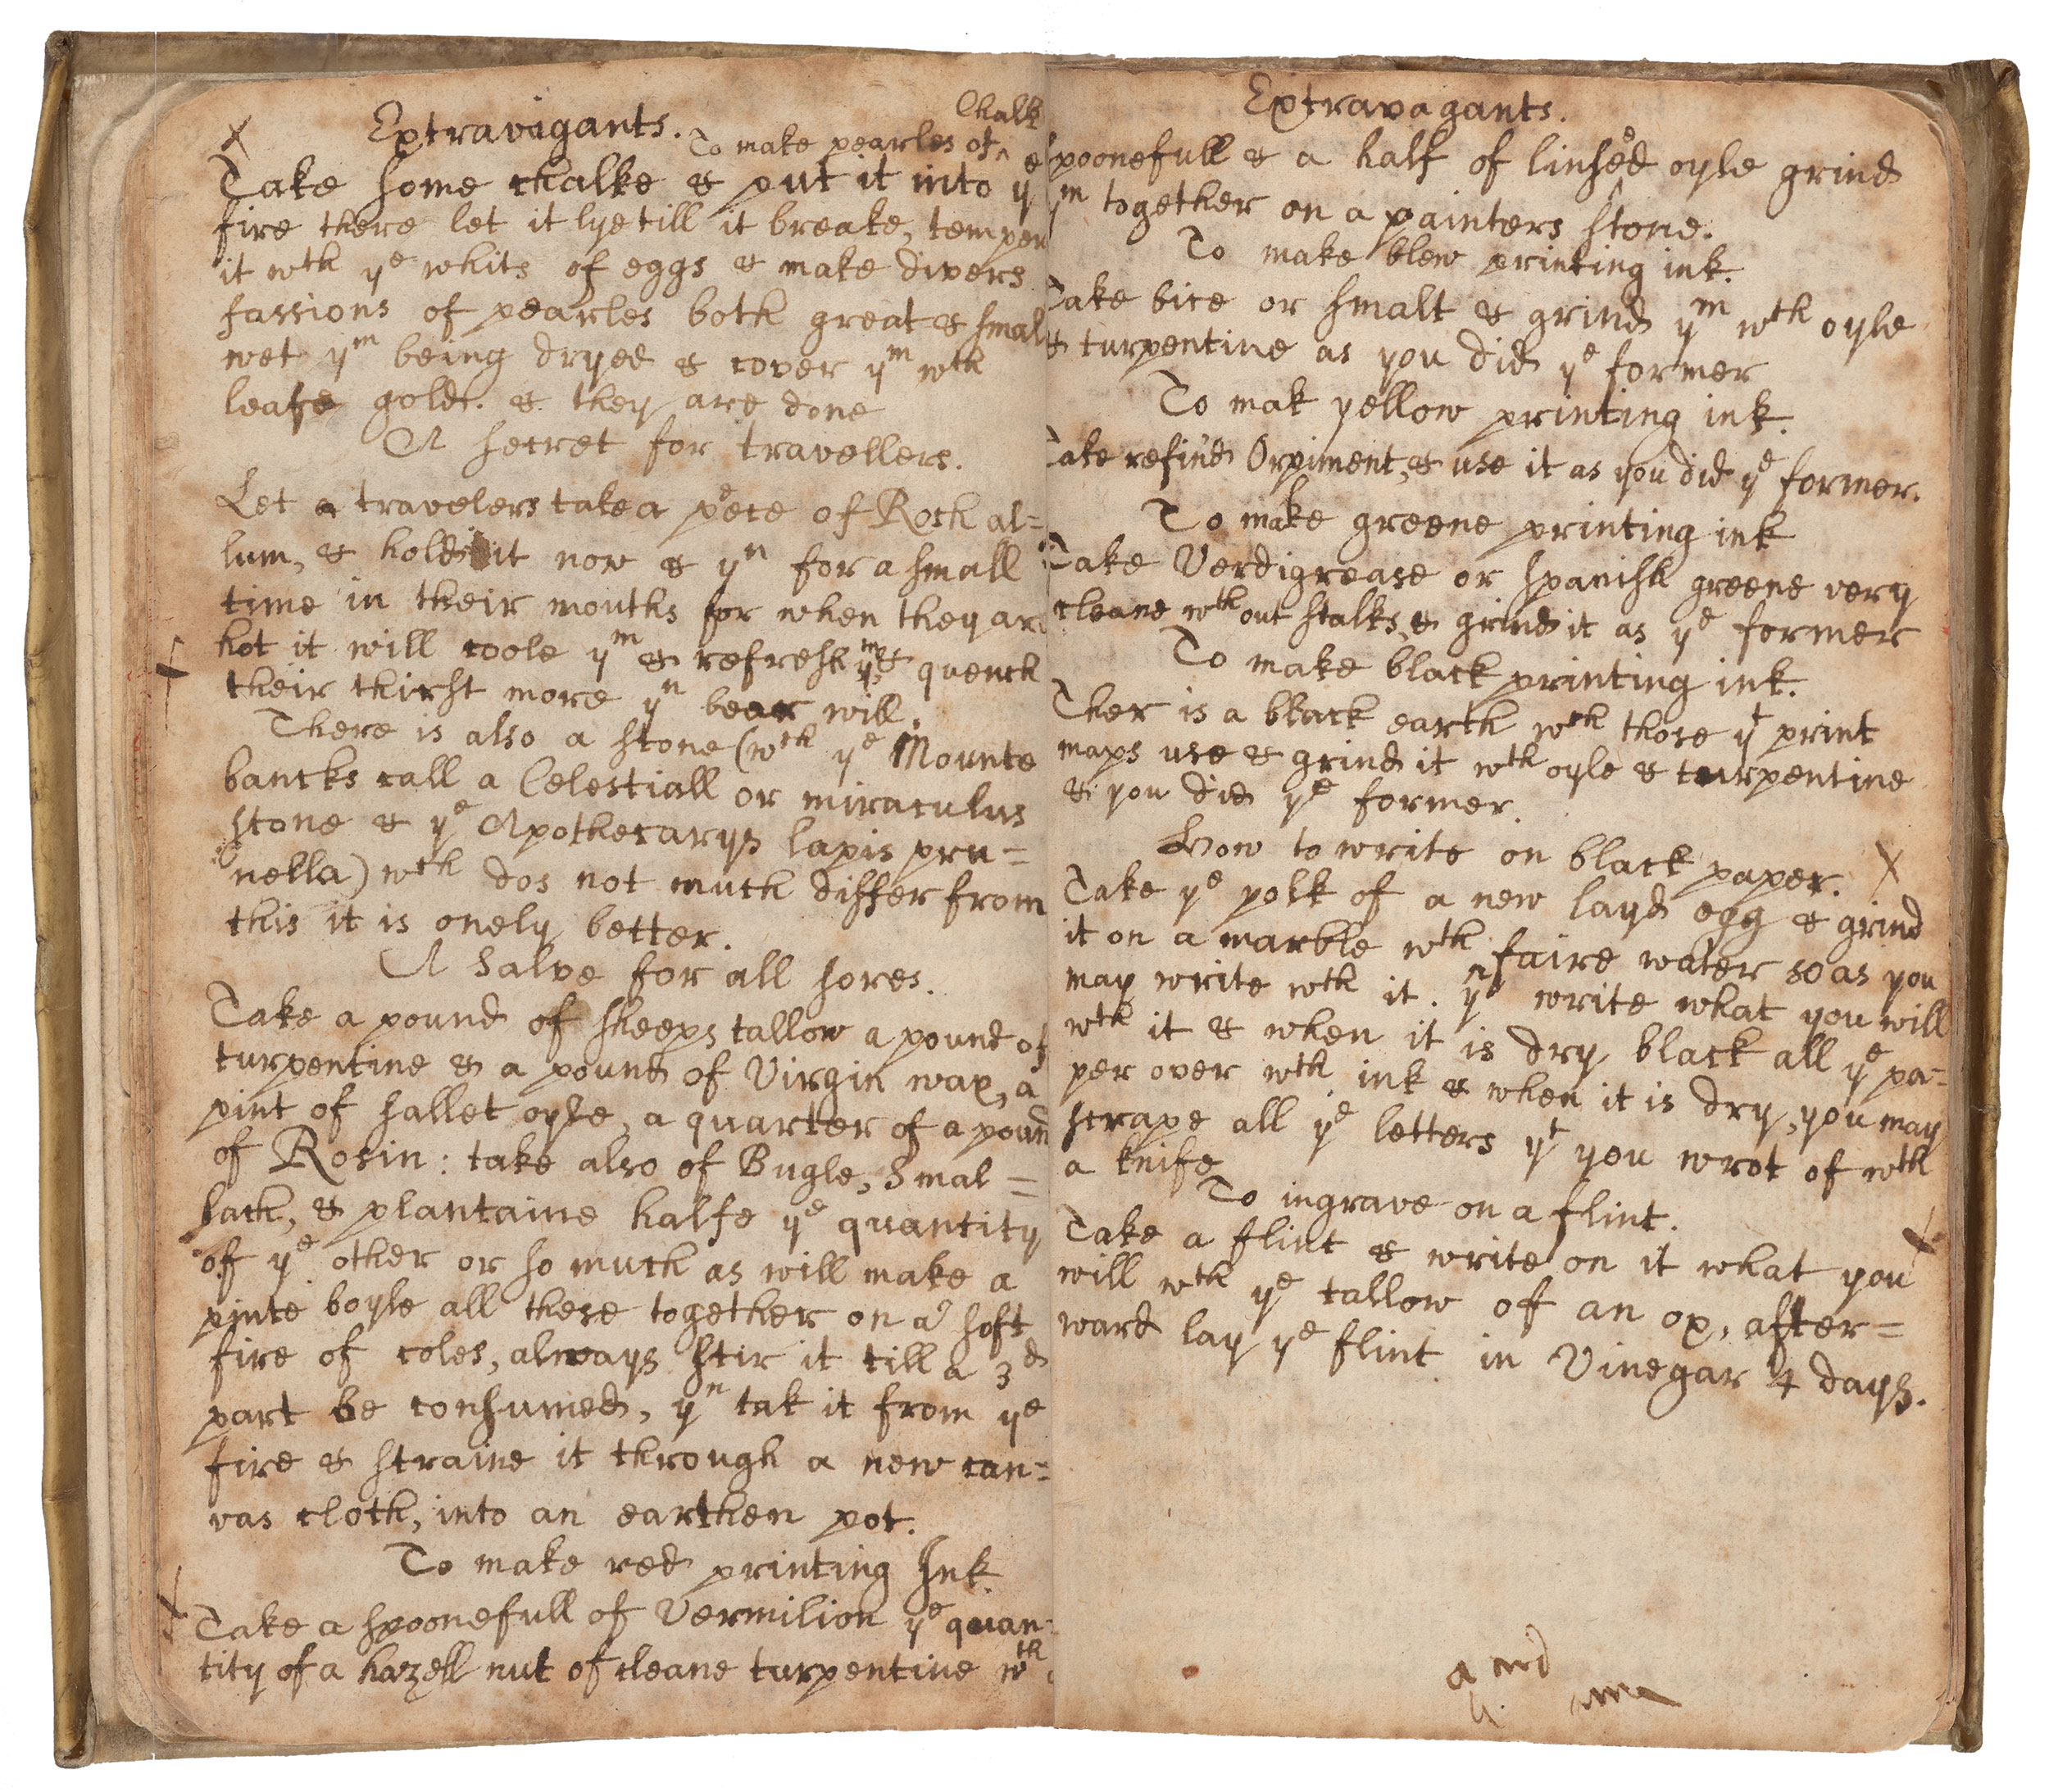 Extravagants.
To make pearles of ^ Chalk
Take some chalke & put it into ye
fire there let it lye till it breake, temper
it wth ye whits of eggs & make divers
fassions of pearles both great & smal
wet ym being dryed & cover ym wth
leafe gold. & they are done
A secret for travellers.
Let a travelers take a pece of Roch al=
lum, & hold it now & yn for a small
time in their mouths for when they are
hot it will coole ym & refresh ym & quench
their thirst more yn bear will.
There is also a stone (wch ye Mounte
bancks call a Celestiall or miraculus
stone & ye Apothecarys lapis pru=
nella) wch dos not much differ from
this it is onely better.
A Salve for all sores.
Take a pound of sheeps tallow a pound of
turpentine & a pound of Virgin wax, a
pint of sallet oyle, a quarter of a pound
of Rosin: take also of Bugle, Smal=
lach, & plantaine halfe ye quantity
of ye other or so much as will make a
pinte boyle all these together on a soft
fire of coles, always stir it till a 3d
part be consumed, yn tak it from ye
fire & straine it through a new can=
vas cloth, into an earthen pot.
To make red printing Ink.
Take a spoonefull of Vermilion ye quan=
tity of a hazell nut of cleane turpentine wth
Extravagants.
spoonefull & a half of linseed oyle grind
ym together on a painters stone.
To make blew printing ink.
Take bice or smalt & grind ym wth oyle
& turpentine as you did ye former
To mak yellow printing ink.
Take refind Orpiment, & use it as you did ye former.
To make greene printing ink
Take Verdigrease or spanish greene very
cleane wthout stalks, & grind it as ye former
To make black printing ink.
Ther is a black earth wch those yt print
maps use & grind it wth oyle & turpentine
as you did ye former.
How to write on black paper.
Take ye yolk of a new layd egg & grind
it on a marble wth faire water so as you
may write wth it. yn write what you will
wth it & when it is dry black all ye pa=
per over wth ink & when it is dry, you may
scrape all ye letters yt you wrot of wth
a knife
To ingrave on a flint.
Take a flint & write on it what you
will wth ye tallow of an ox, after=
ward lay ye flint in Vinegar 4 days.